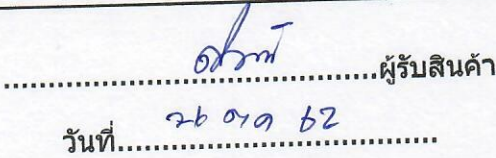 ผู้รับสินค้า
วันที่ 26 ตค 62